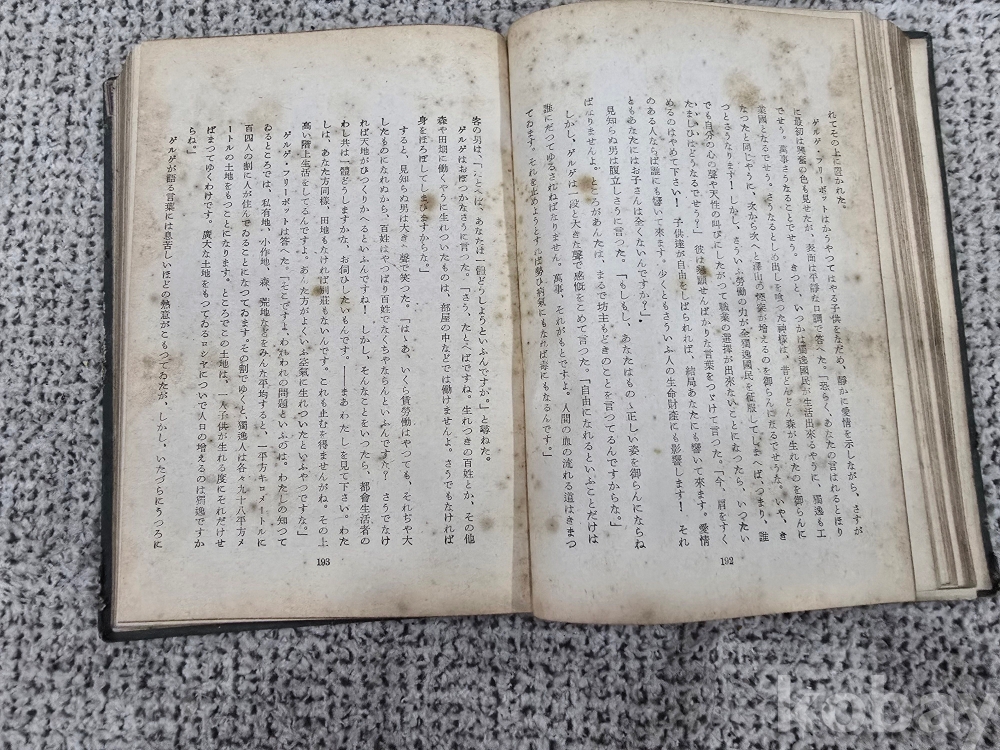 れてその上に置かれた。
ゲルゲ・フリーボットはかうやつてはやる子供をなだめ、靜かに愛情を示しながら、さすが
に最初は興奮の色も見せたが、表面は平靜な口調で答へた。「恐らく、あなたの言はれるとほり
でせう。萬事さうなることでせう。きつと、いつかは獨逸國民が生活出來るやうに、獨逸も工
業國となるでせう。さうなるとしめ出しを喰つた神樣は、昔どんどん森が生れたのを御らんに
なつたと同じやうに、次から次へと澤山の煙突が增えるのを御らんになるでせうな。いや、き
つとさうなります！しかし、さういふ勞働の力が全獨逸國民を征服してしまへば、つまり、誰
でも自分の心の聲や天性の叫びにしたがつて職業の選擇が出來ないことになつたら、いつたい
たましひはどうなるでせう？」彼は せんばかりな言葉をつゞけて言つた。「今、肩をすく
めるのはやめて下さい！子供達が自由をしばられれば、結局あなたにも響いて來ます。愛情
のある人ならば誰にも響いて來ます。少くともさういふ人の生命財產にも影響します！それ
ともあなたにはお子さんは全くないんですか？」
見知らぬ男は腹立しさうに言つた。「もしもし、あなたはもの正しい姿を御らんにならね
ばなりませんよ。ところがあんたは、まるで坊主もどきのことを言つてるんですからな。」
しかし、ゲルゲは、段と大きな聲で感慨をこめて言つた。「自由になれるといふことだけは
誰にだつてゆるされねばなりません。萬事、それがもとですよ。人間の血の流れる道はきまつ
てゐます。それを止めようとすれば勢ひ病氣にもなれば毒にもなるんです。」
192
客の男は、「たとへば、あなたは一體どうしようといふんですか。」と尋ねた。
ゲルゲはおぼつかなさうに言つた。「さう、たとへばですね。生れつきの百姓とか、その他
森や田畑に働くやうに生れついたものは、部屋の中などでは働けませんよ。さうでもなければ
身をほろぼしてしまひますからな。」
すると、見知らぬ男は大きい聲で笑つた。「はゝあ、いくら賃勞働はやつても、それぢや大
したものになれぬから、百姓はやつぱり百姓でなくちやならんといふんですか？さうでなけ
れば天地がひつくりかへるといふんですね！しかし、そんなことをいつたら、都會生活者の
わし共は一體どうしますかな、お伺ひしたいもんです。――まあわたしを見て下さい。わた
しは、あなた方同樣、田地もなければ別莊もないんです。これも止むを得ませんがね。その上
高い階上生活をしてるんですよ。あんた方がよくいふ空氣に生れついたといふやつですな。」
ゲルゲ・フリーボットは答へた。「そこですよ、われわれの問題といふのは。わたしの知つて
ゐるところでは、私有地、小作地、森、荒地などをみんな平均すると、一平方キロメートルに
百四人の割に人が住んでゐることになつてゐます。その割でゆくと、獨逸人は各々九十八平方メ
ートルの土地をもつことになります。ところでこの土地は、一人子供が生れる度にそれだけせ
ばまつてゆくわけです。廣大な土地をもつてゐるロシヤについで人口の增えるのは獨逸ですか
らね。」
ゲルゲが語る言葉には息苦しいほどの熱意がこもつてゐたが、しかし、いたづらにうつろに
193
kobay